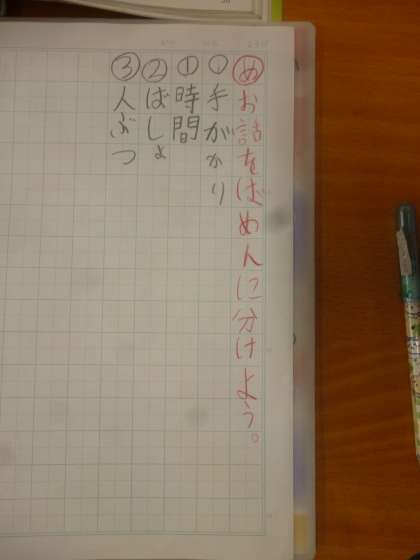 めお話をばめんに分けよう。
○手がかり
①時間
②ばしょ
③人ぶつ